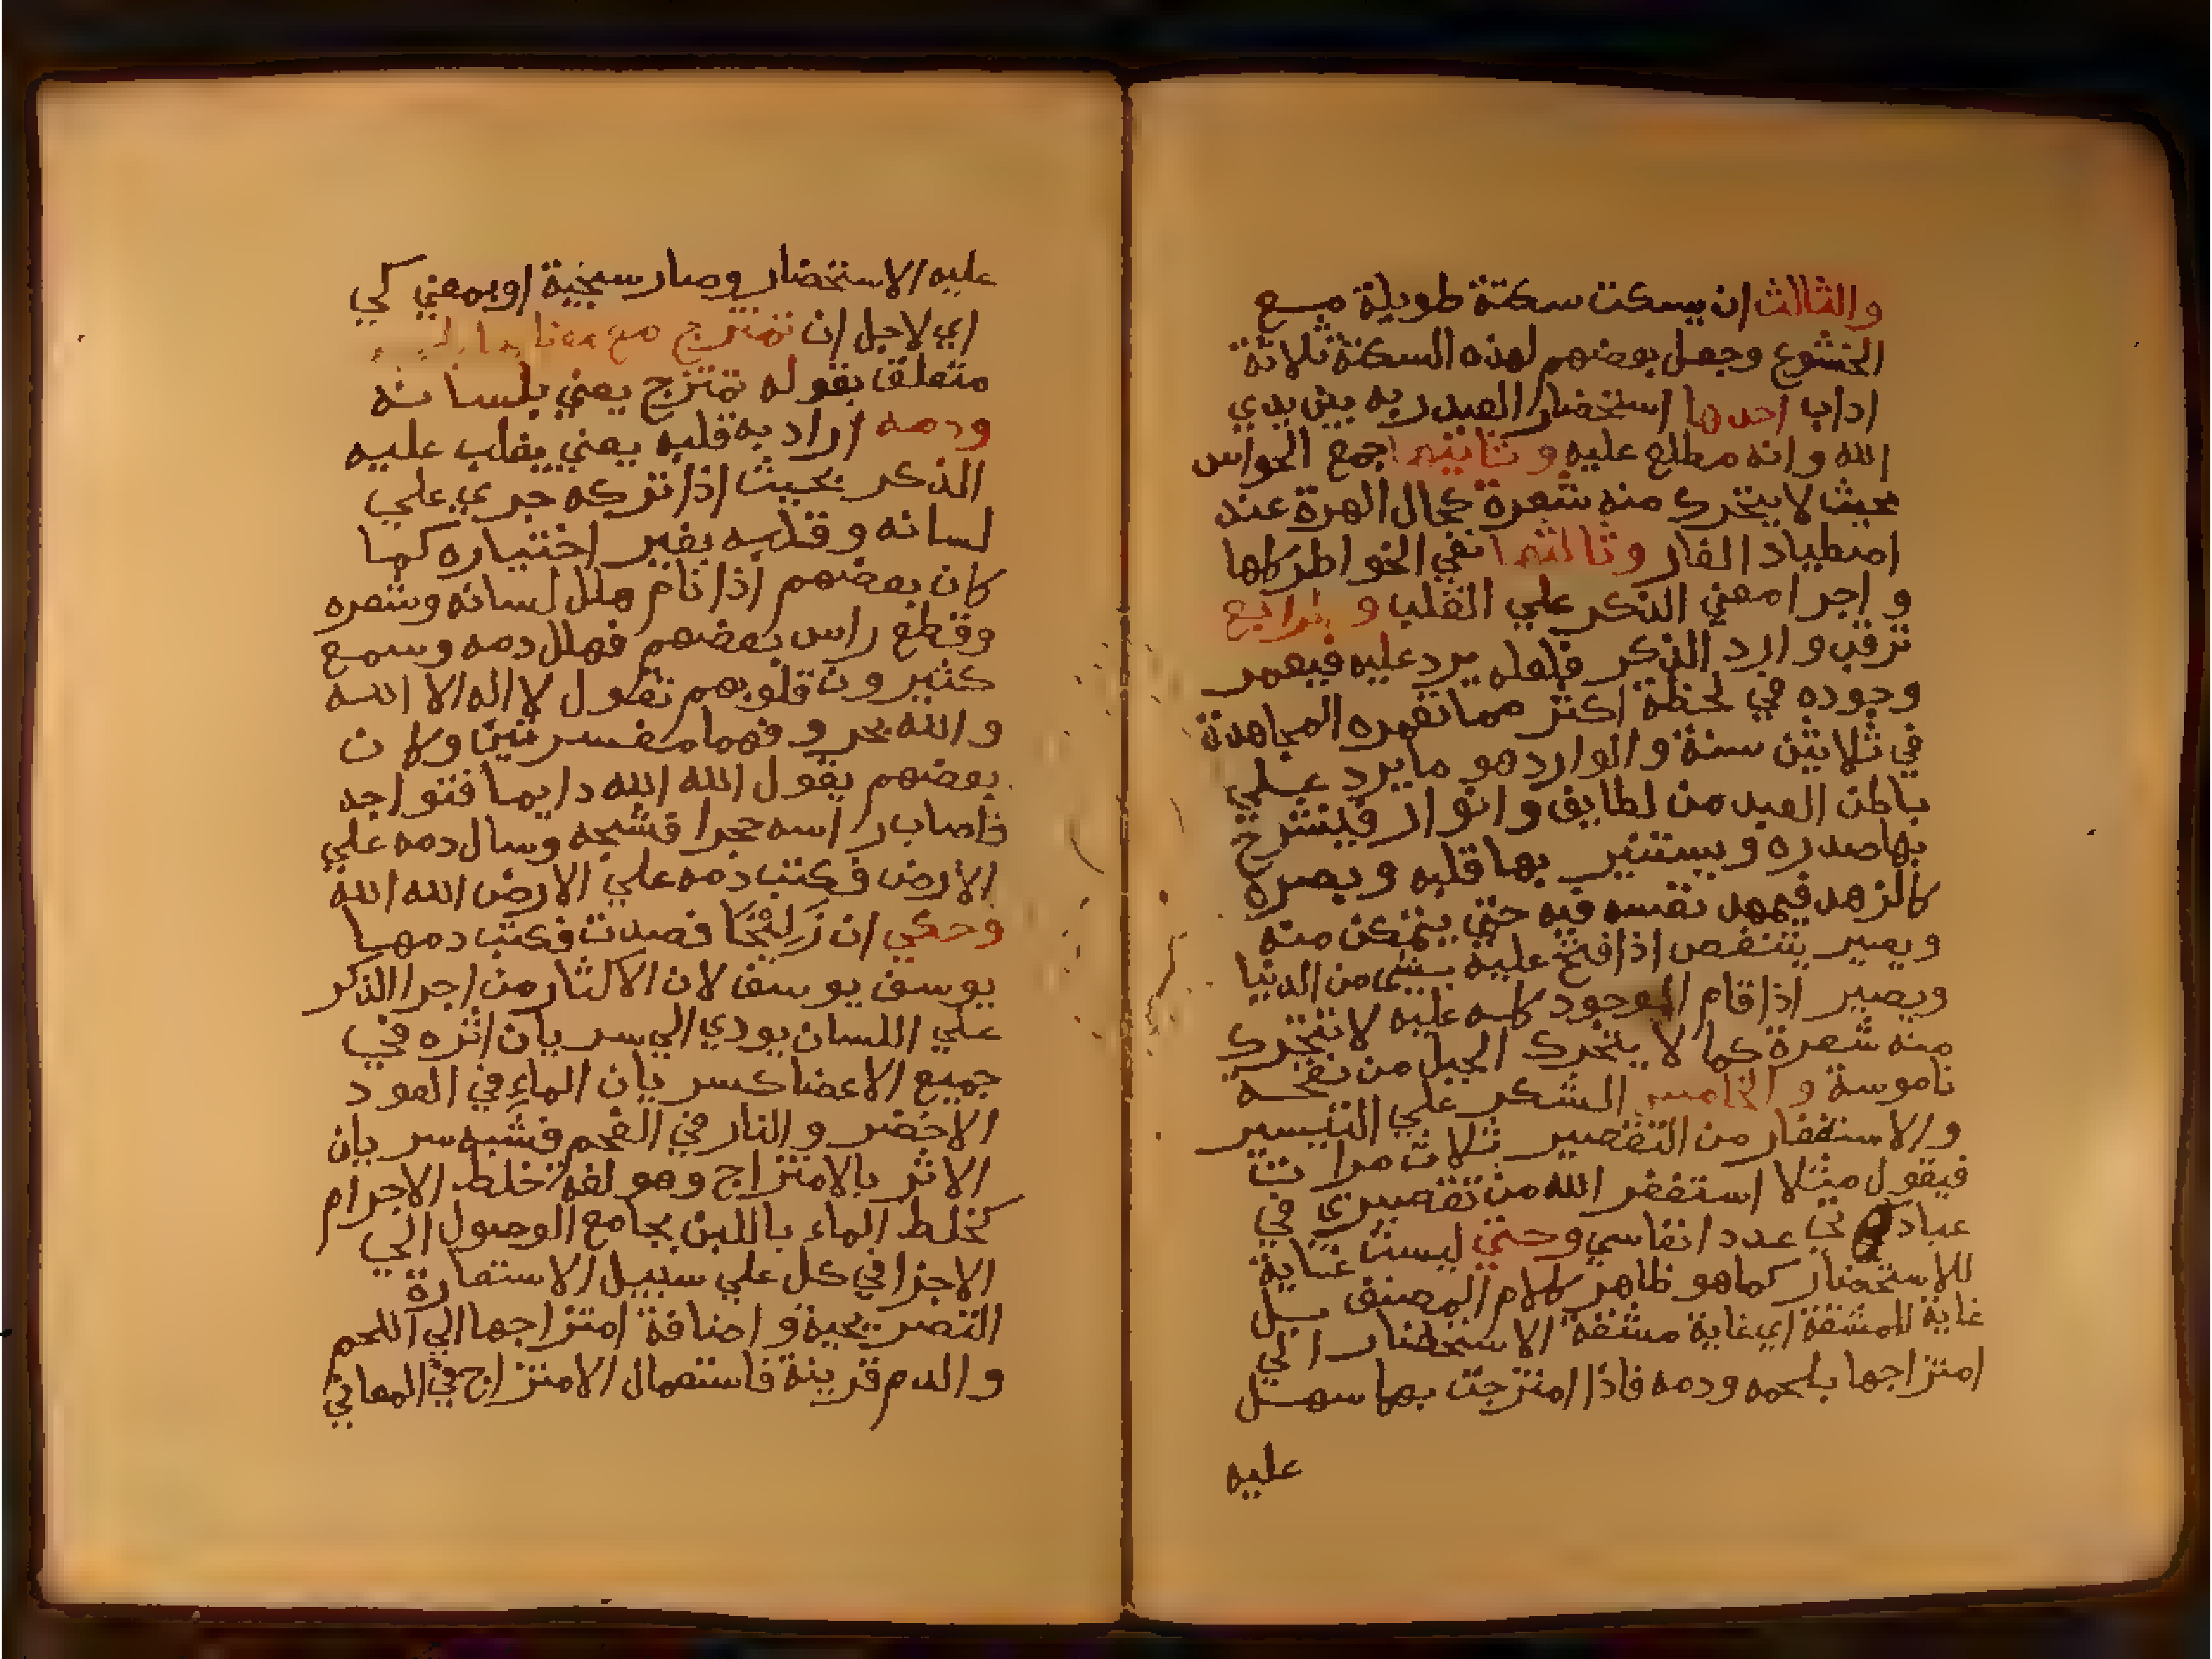 والثالث ان يسكت سكتة طويلة مع
الخشوع وجعل بعضهم لهذه السكتة ثلاثة
اداب احدها استحضار العبد ربه بين يدي
الله وانه مطلع عليه وثانيها جمع الحواس
بحيث لا يتحرك منه شعرة كحال الهرة عند
اصطياد الفار وثالثها نفي الخواطر كلها
واجرا معني الذكر علي القلب والرابع
ترقب وارد الذكر فلعله يرد عليه فيعمر
وجوده في لحظة اكثر مما تعمره المجاهدة
في ثلاثين سنة والوارد هو ما يرد علي
باطن العبد من لطايف وانوار فينشرح
بها صدره ويستنير بها قلبه وبصره
كالزهد فيمهد نفسه فيه حتي يتمكن منه
ويصير يتنغص اذا فتح عليه بشي من الدنيا
ويصير اذا قام الوجود كله عليه لا تتحرك
منه شعرة كما لا يتحرك الجبل من نفحة
ناموسة والخامس الشكر علي التيسير
والاستغفار من التقصير ثلاث مرات
فيقول مثلا استغفر الله من تقصيري في
عبادتي عدد انفاسي وحتي ليست غاية
للاستحضار كما هو ظاهر كلام المصنف بل
غاية للمشقة اي غاية مشقة الاستحضار الي
امتزاجها بلحمه ودمه فاذا امتزجت بها سهل
عليه
عليه الاستحضار وصار سجية او بمعني كي
اي لاجل ان تمتزج مع معناها
متعلق بقوله تمتزج يعني بلسانه
ودمه اراد به قلبه يعني يغلب عليه
الذكر بحيث اذا تركه جري علي
لسانه وقلبه بغير اختياره كما
كان بعضهم اذا نام هلل لسانه وشعره
وقطع راس بعضهم فهلل دمه وسمع
كثيرون قلوبهم تقول لا اله الا الله
والله بحروفهما مفسرتين وكان
بعضهم يقول الله الله دايما فتواجد
فاصاب راسه حجرا فشجه وسال دمه علي
الارض فكتب دمه علي الارض الله الله
وحكي ان زليخا فصدت فكتب دمها
يوسف يوسف لان الاكثار من اجرا الذكر
علي اللسان يودي الي سريان اثره في
جميع الاعضا كسريان الماء في العود
الاخضر والنار في الفحم فشبه سريان
الاثر بالامتزاج وهو لغة خلط الاجرام
كخلط الماء باللبن بجامع الوصول الي
الاجزا في كل علي سبيل الاستعارة
التصريحية واضافة امتزاجها الي اللحم
والدم قرينة فاستعمال الامتزاج في المعاني